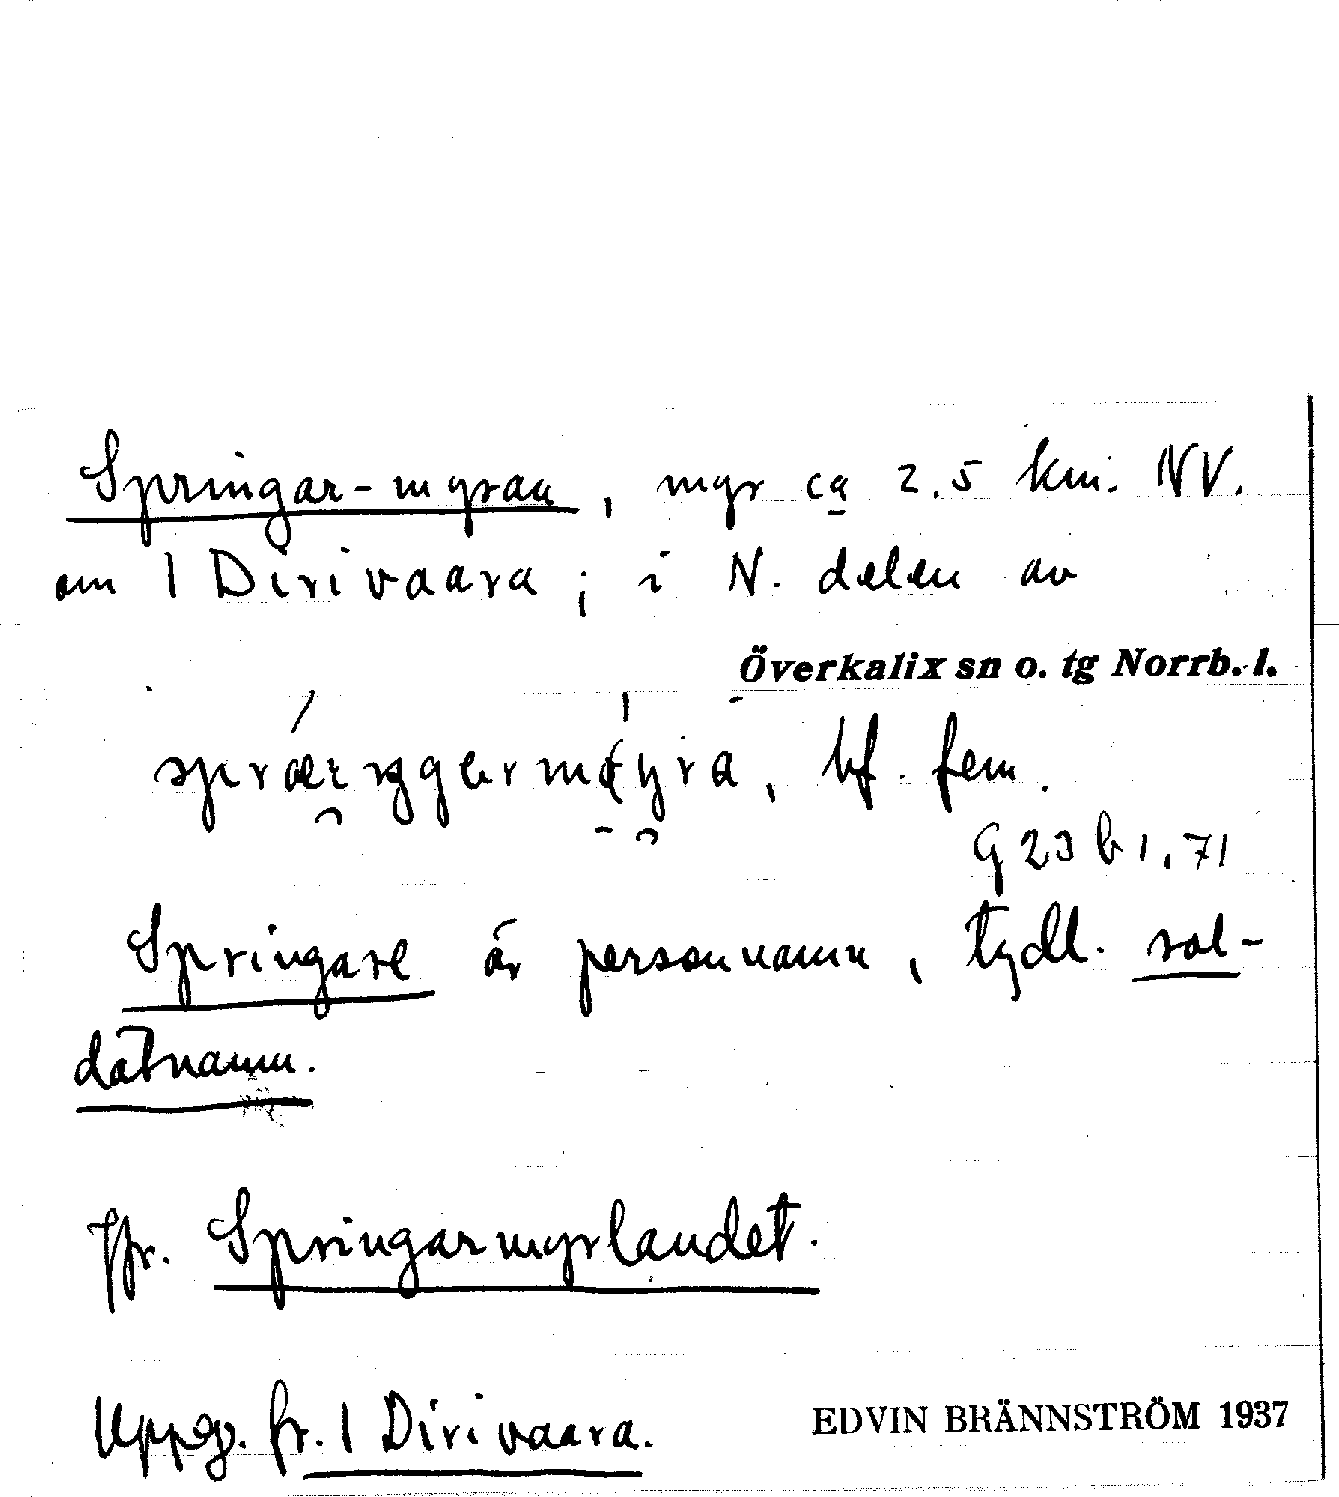 Springar-myran, myr ca 2.5 km. NV.
om 1 Dirivaara; i N. delen av
Överkalix sn o. tg Norrb. l.
bf. fem.
G 23 b 1.71
Springare är personnamn, tydl. sol-
datnamn.
Jfr. Springarmyrlandet.
Uppg. fr. 1 Dirivaara.
EDVIN BRÄNNSTRÖM 1937